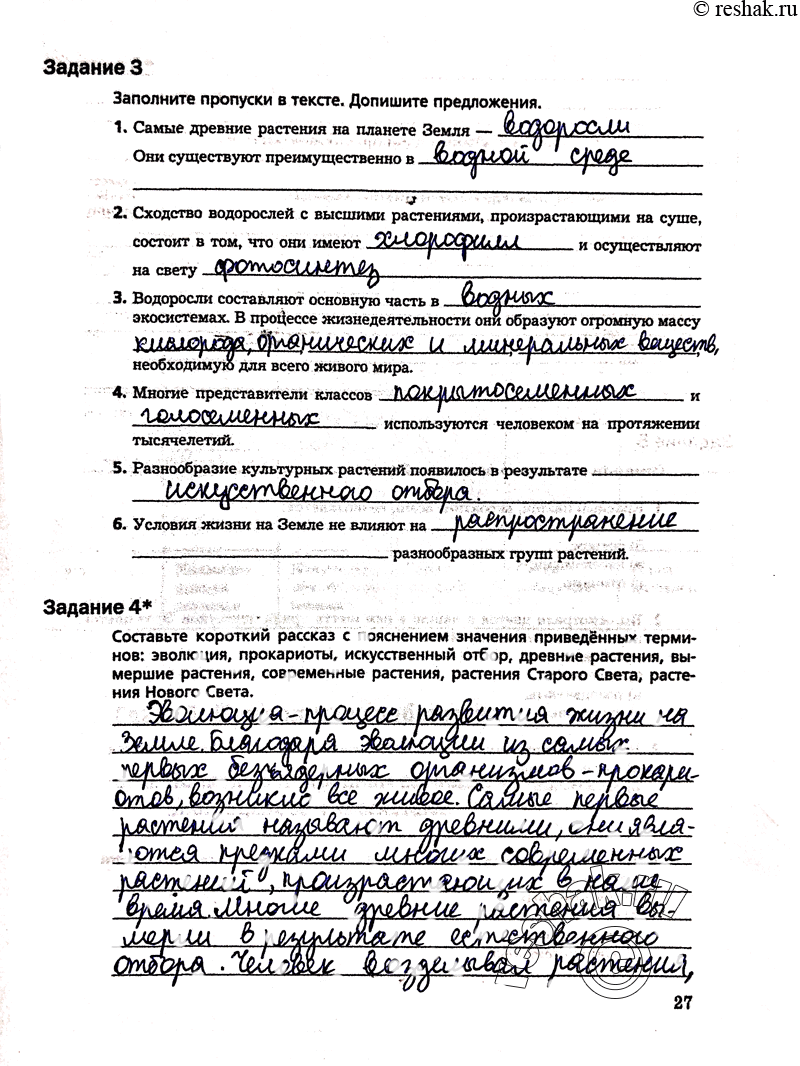 © reshak.ru
Задание 3
Заполните пропуски в тексте. Допишите предложения.
1. Самые древние растения на планете Земля — водоросли
Они существуют преимущественно в водной среде
2. Сходство водорослей с высшими растениями, произрастающими на суше,
состоит в том, что они имеют хлорофилл и осуществляют
на свету фотосинтез
3. Водоросли составляют основную часть в водных
экосистемах. В процессе жизнедеятельности они образуют огромную массу
кислорода, органических и минеральных веществ,
необходимую для всего живого мира.
4. Многие представители классов покрытосеменных и
голосеменных используются человеком на протяжении
тысячелетий.
5. Разнообразие культурных растений появилось в результате
искусственного отбора.
6. Условия жизни на Земле не влияют на распространение
разнообразных групп растений.
Задание 4*
Составьте короткий рассказ с пояснением значения приведённых терми-
нов: эволюция, прокариоты, искусственный отбор, древние растения, вы-
мершие растения, современные растения, растения Старого Света, расте-
ния Нового Света.
Эволюция - процесс развития жизни на
Земле. Благодаря эволюции из самых
первых безъядерных организмов - прокари-
отов, возникло все живое. Самые первые
растения называют древними, они явля-
ются предками многих современных
растений, произрастающих в наше
время. Многие древние растения вы-
мерли в результате естественного
отбора. Человек возделывал растения,
27